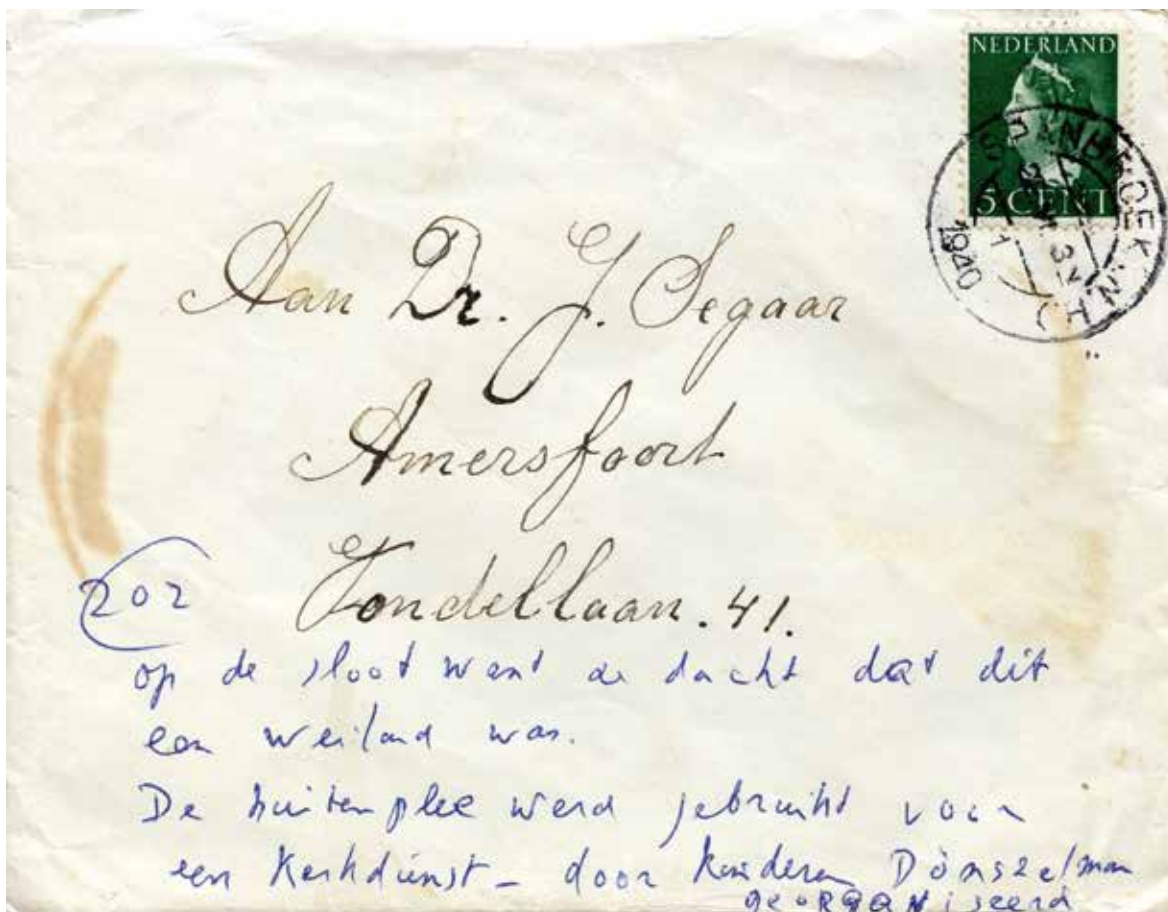 NEDERLAND
5 CENT
SPANBROEK (N.H)
1940
Aan Dr. J. Segaar
Amersfoort
Vondellaan. 41.
202
op de sloot want ze dacht dat dit
een weiland was.
De buitenplee werd gebruikt voor
een Kerkdienst - door kinderen Dönszelman
georganiseerd